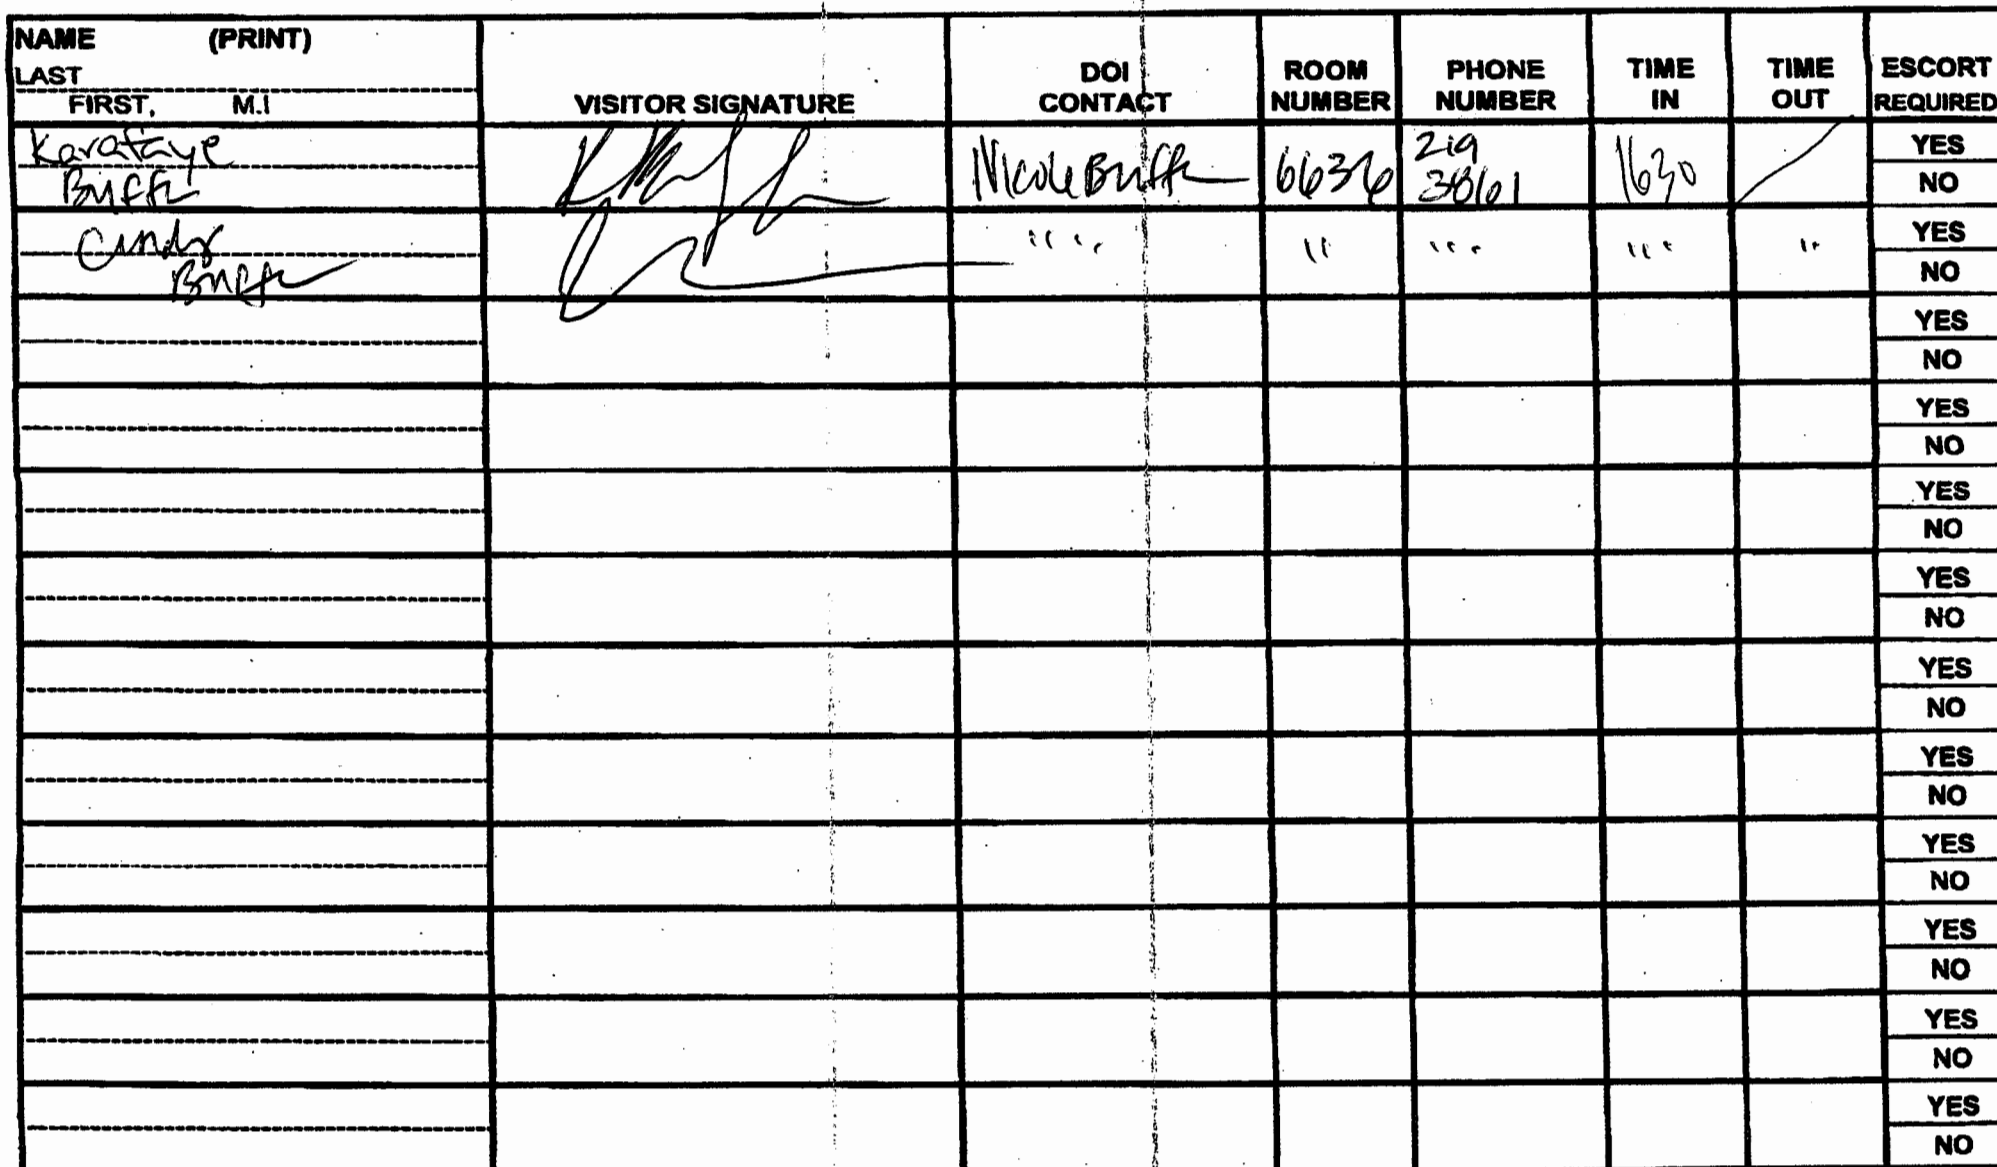 NAME (PRINT)
LAST
FIRST, M.I
VISITOR SIGNATURE
DOI CONTACT
ROOM NUMBER
PHONE NUMBER
TIME IN
TIME OUT
ESCORT REQUIRED
Karafaye
Nicole
6636
219
3861
1630
YES
NO
Cindy
" "
"
"
"
"
YES
NO
YES
NO
YES
NO
YES
NO
YES
NO
YES
NO
YES
NO
YES
NO
YES
NO
YES
NO
YES
NO